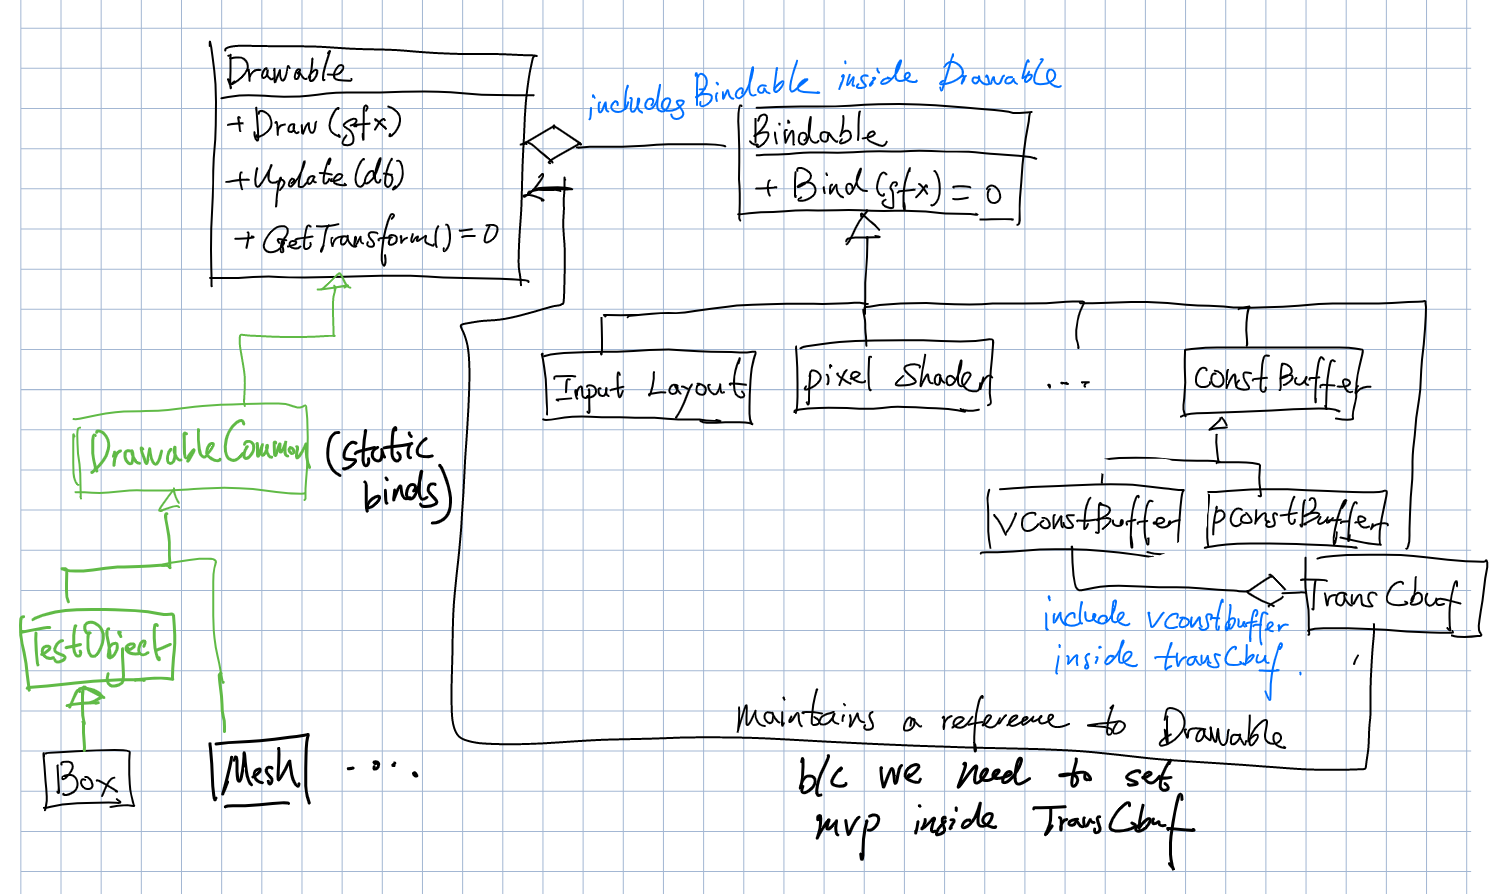 Drawable
+ Draw (gfx)
+ Update (dt)
+ GetTransform() = 0
includes Bindable inside Drawable
Bindable
+ Bind (gfx) = 0
Input Layout
pixel Shader
...
constBuffer
DrawableCommon
(static
binds)
vconstBuffer
pconstBuffer
TransCbuf
include vconstbuffer
inside transCbuf.
TestObject
Box
Mesh
....
maintains a reference to Drawable
b/c we need to set
mvp inside TransCbuf